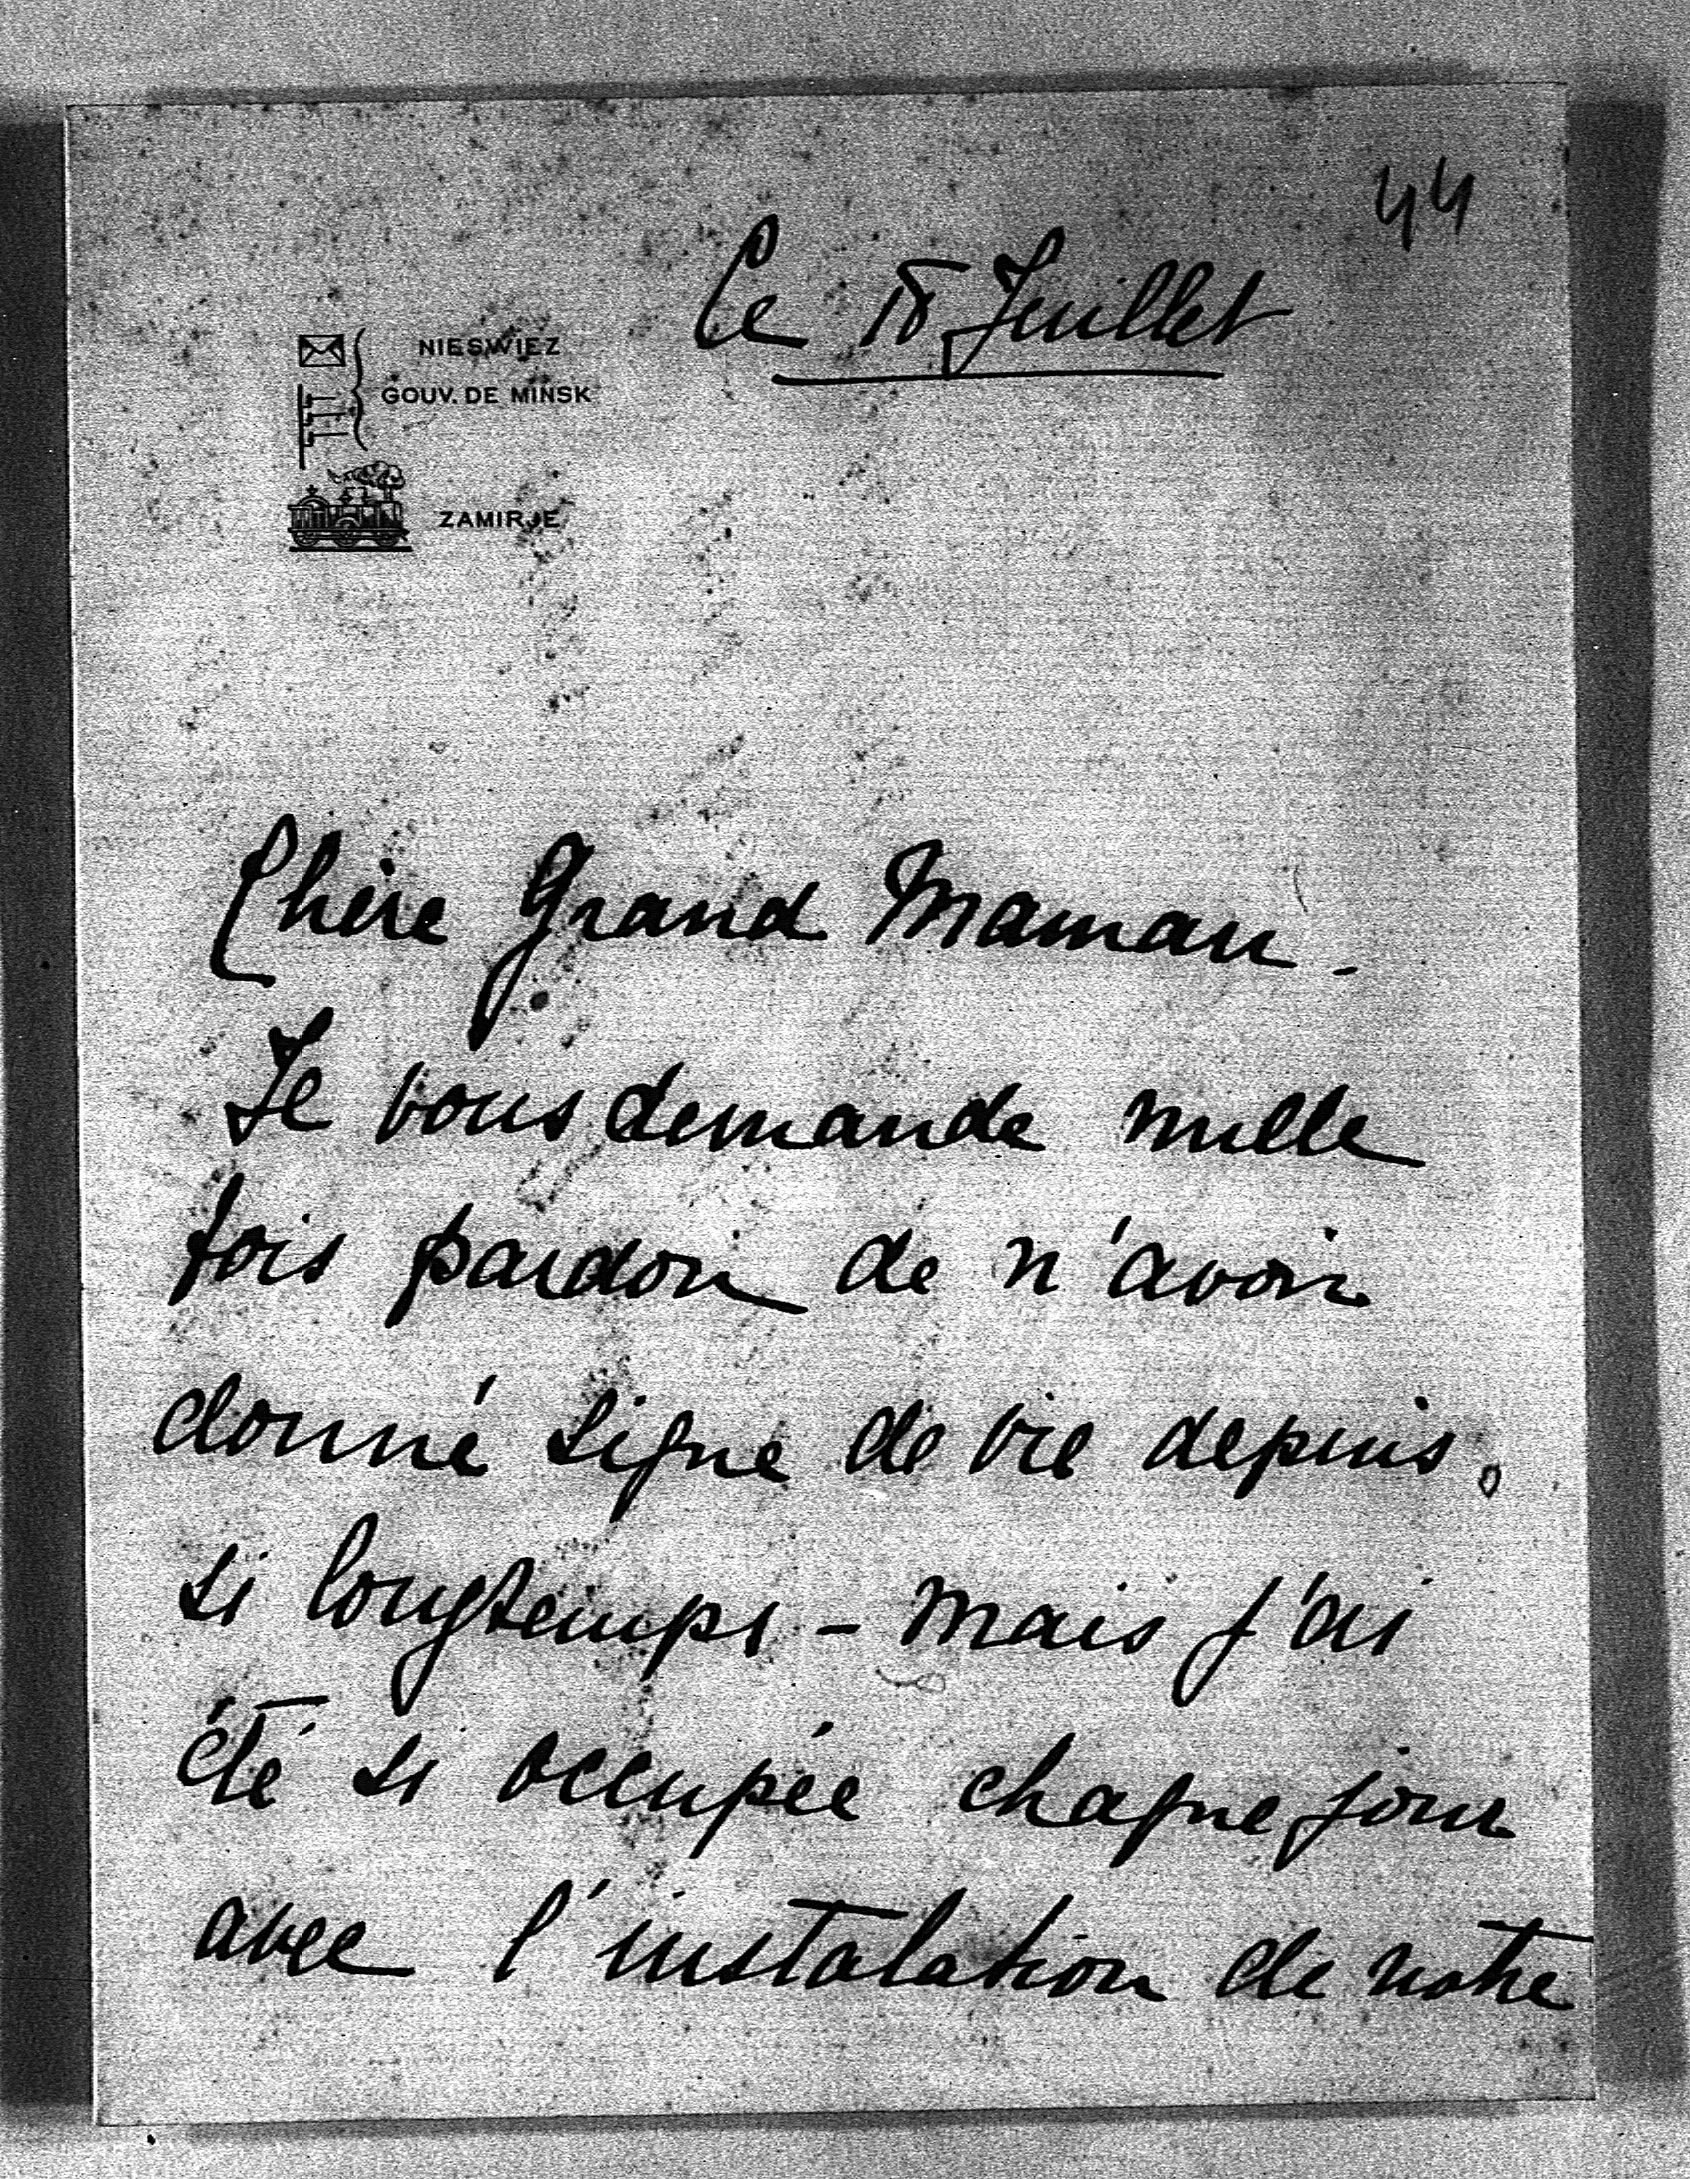 44
Ce 18 Juillet
NIESWIEZ
GOUV. DE MINSK
ZAMIRJE
Chère Grand Maman.
Je vous demande mille
fois pardon de n'avoir
donné signe de vie depuis
si longtemps - mais j'ai
été si occupée chaque jour
avec l'instalation de notre